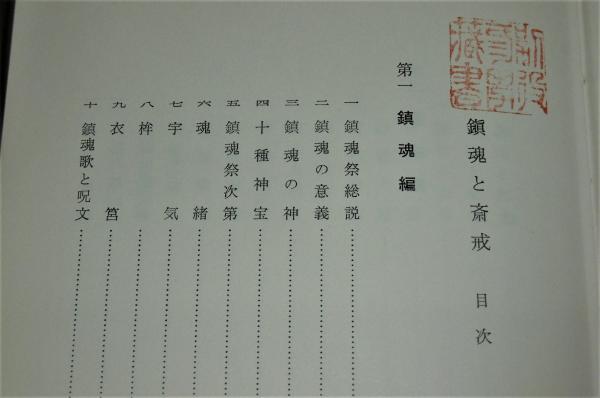 鎮魂と斎戒 目次
第一 鎮魂編
一 鎮魂祭総説
二 鎮魂の意義
三 鎮魂の神
四 十種神宝
五 鎮魂祭次第
六 魂緒
七 宇気
八 桙
九 衣筥
十 鎮魂歌と呪文